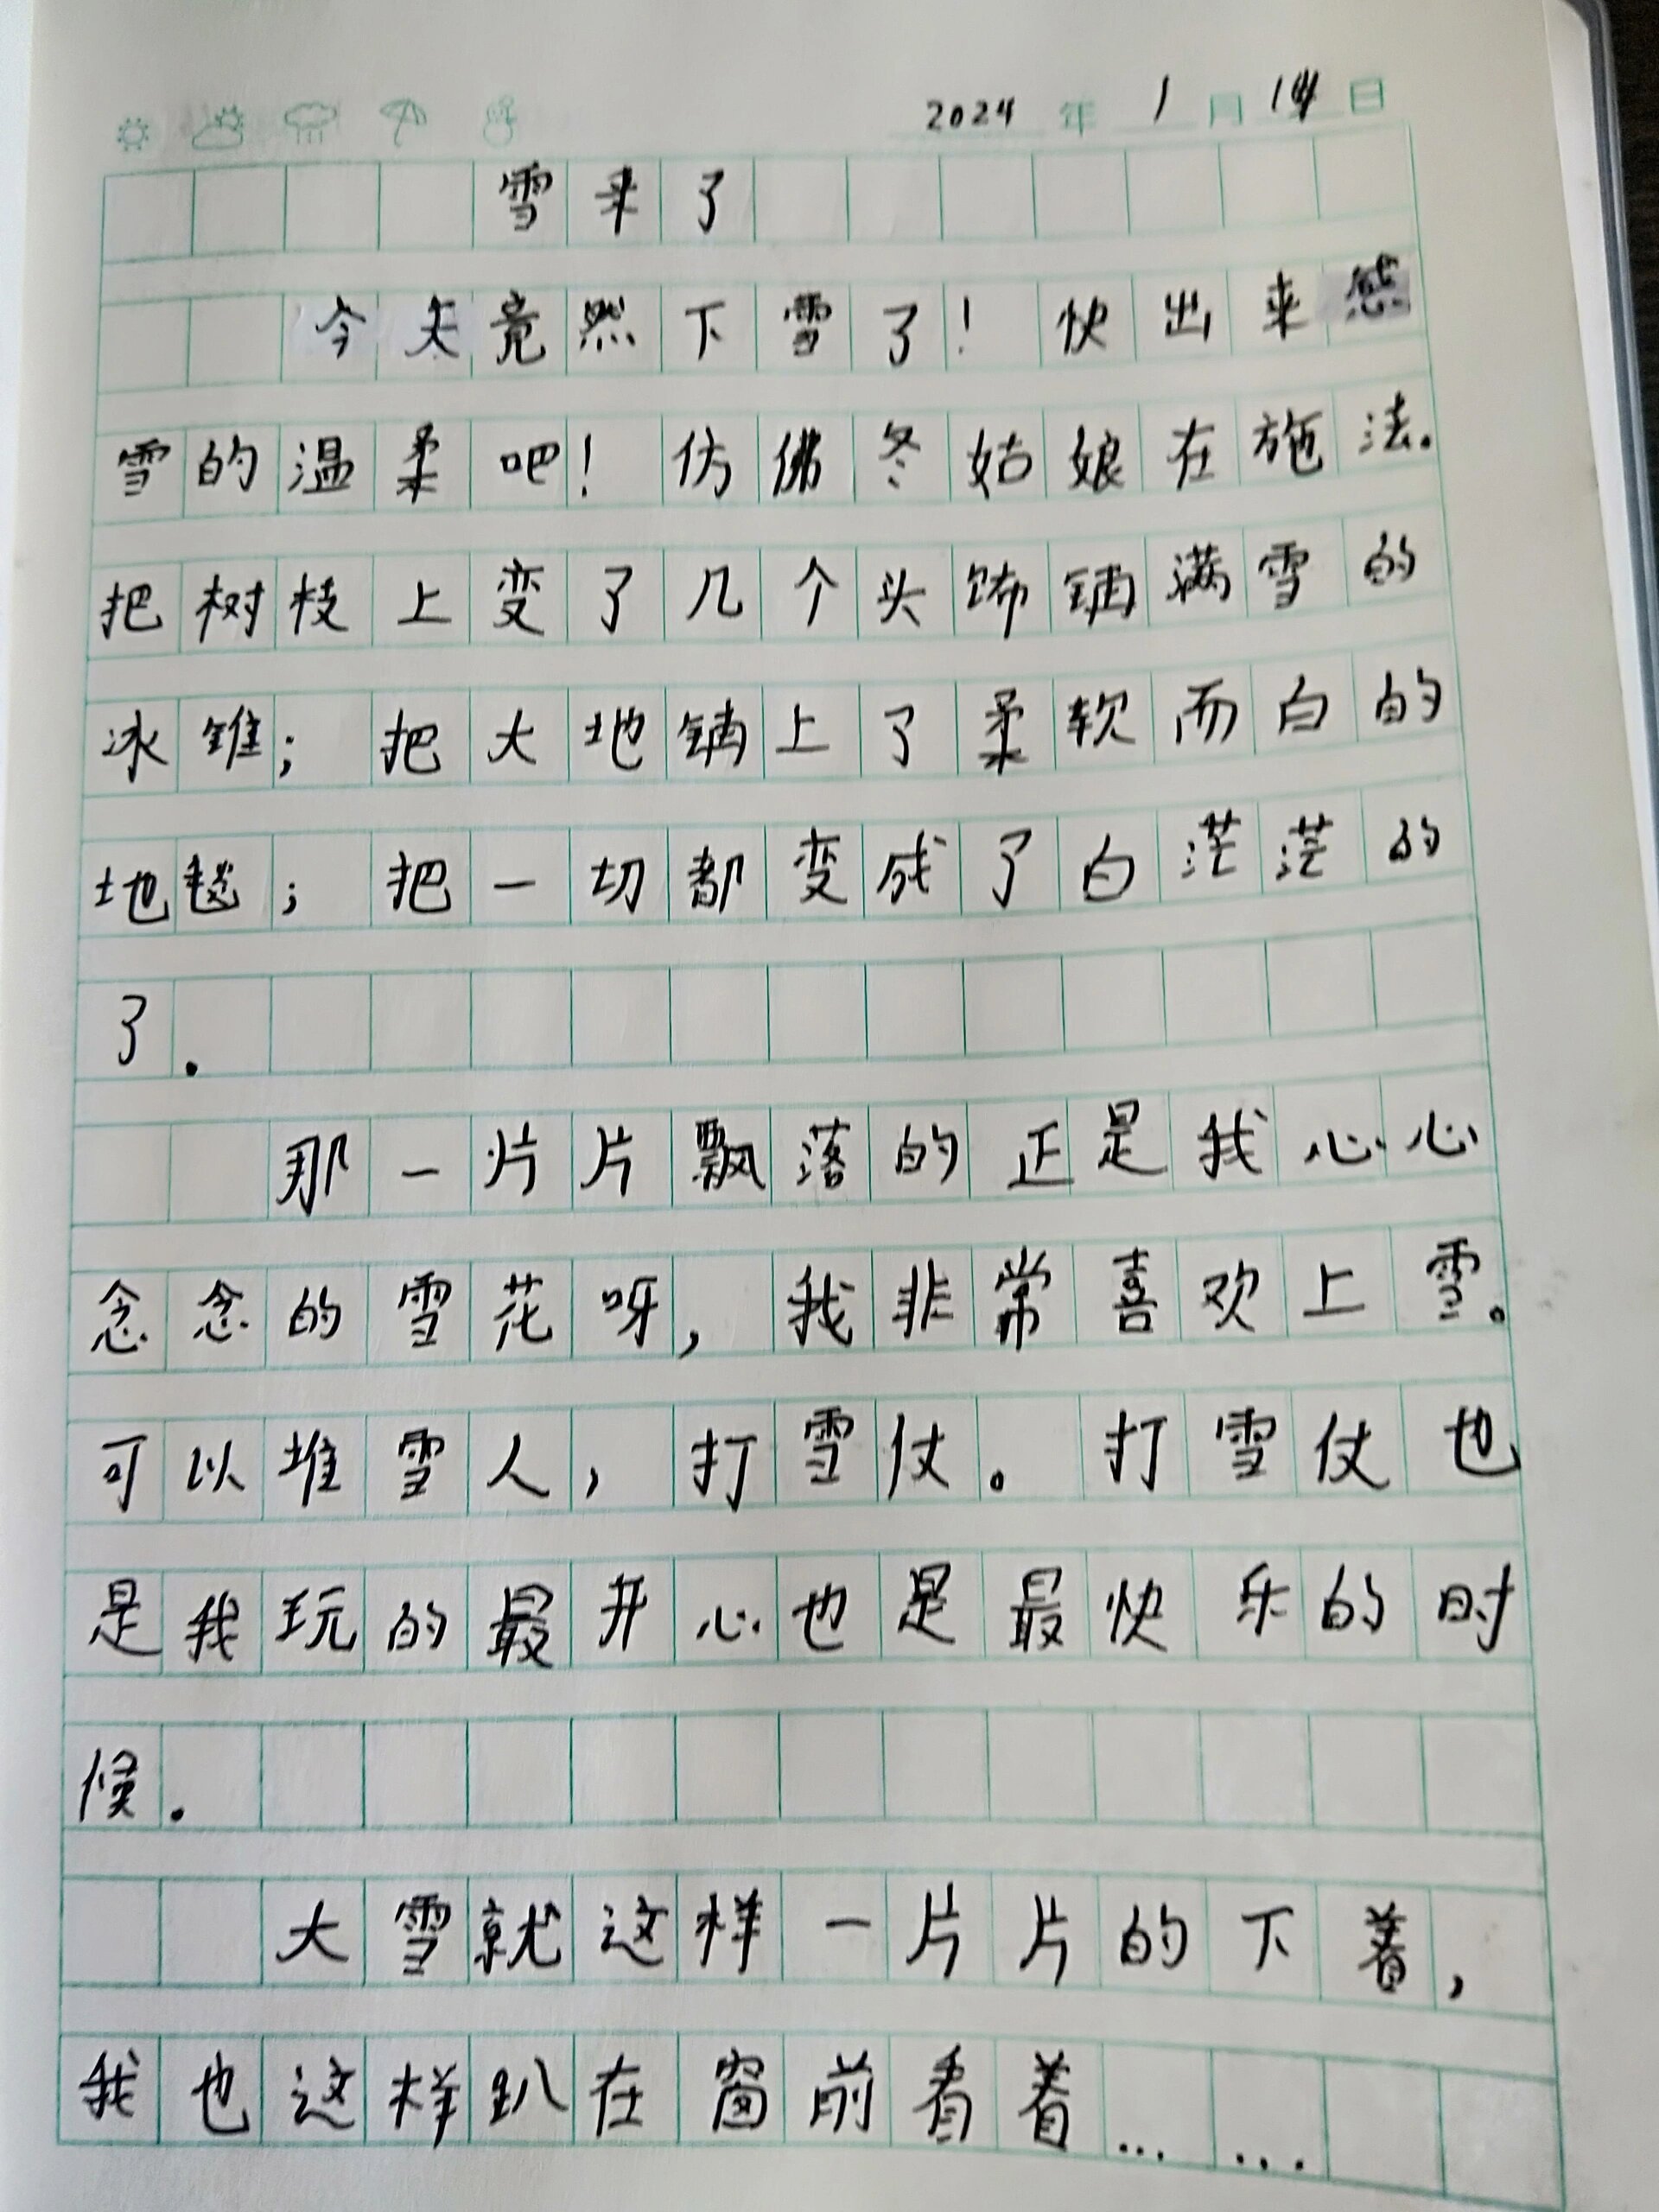 2024年1月14日
雪来了
今天竟然下雪了！快出来感
雪的温柔吧！仿佛冬姑娘在施法.
把树枝上变了几个头饰铺满雪的
冰锥；把大地铺上了柔软而白的
地毯；把一切都变成了白茫茫的
了.
那一片片飘落的正是我心心
念念的雪花呀，我非常喜欢上雪。
可以堆雪人，打雪仗。打雪仗也
是我玩的最开心也是最快乐的时
候.
大雪就这样一片片的下着，
我也这样趴在窗前看着……